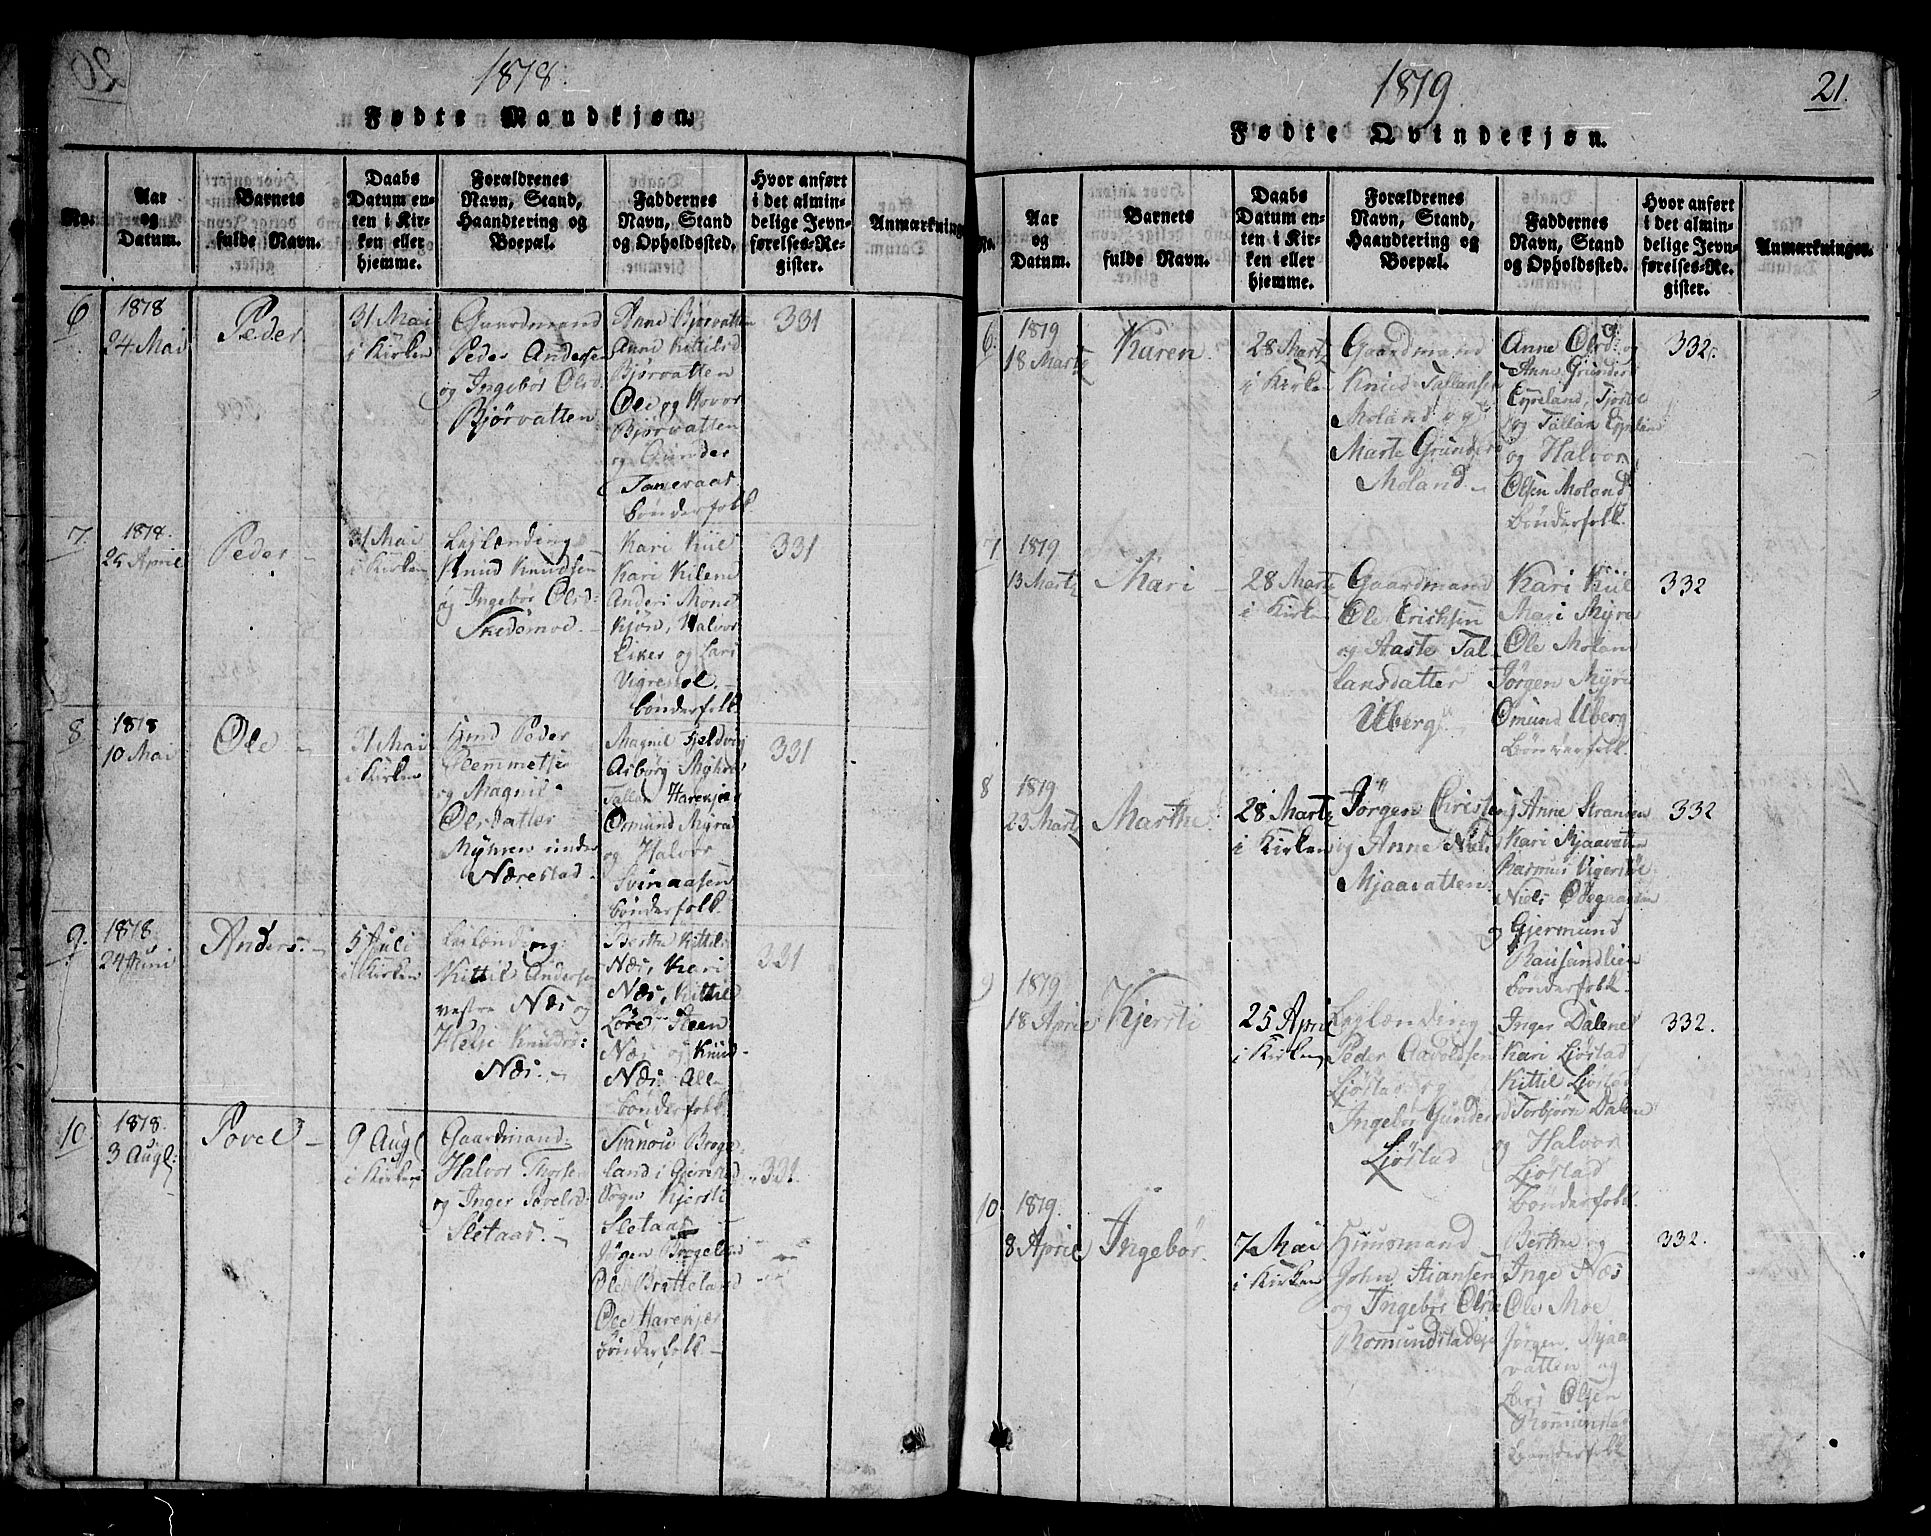 1818.
Fødte Mandkjøn.
No.
Aar
og
Datum.
Barnets
fulde Navn.
Daabs
Datum en-
ten i Kir-
ken eller
hjemme.
Forældrenes
Navn, Stand,
Haandtering og
Boepæl.
Faddernes
Navn, Stand
og Opholdssted.
Hvor anført
i det almin-
delige Jevn-
førelses-Re-
gister.
Anmærkninge
6
1818
24 Mai
Peder
31 Mai
i Kirken
Gaardmand
Peder Andersen
og Ingebor Olsd:
Bjørvatten
Anne Bjørvatten
Anne Kittilsd
Bjørvatten
Ole og Hovor
Bjørvatten
og Gunder
bønderfolk
331
7.
1818.
25 April
Peder –
31 Mai
i Kirken
Leilænding
Knud Knudsen
og Ingebor Olsd:
Skedsmoe –
Kari Kiil
Kari Kilene
Halvor
og Lars
bønderfolk
331
8
1818
10 Mai
Ole –
31 Mai
i Kirken
Peder
og Magnil
Olsdatter
Myhren under
Nærestad.
Magnil
Asborg Myhren
Tallov Harekjær
Omund Myra
og Halvor
Svinaasen
bønderfolk.
331
9.
1818.
24 Juni
Anders. –
5 Juli
i Kirken
Leilænding:
Kittil Andersen
vestre Næs og
Helje Knudsd:
Næs. –
Berthe Kittils
Næs, Kari
Næs, Kittil
Steen
Næs og Knud
Næs. Alle
bønderfolk.
331
10.
1818.
3 Augl:
Povel –
9 Augl
i Kirken
Gaardmand:
Halvor Thorsen
og Inger Povelsd:
Sletaas. –
land i Gjerestad
Sogn Kjersti
Sletaas –
Jøgen
Ole Bratteland
Ole Harekjær
bønderfolk. –
331
1819.
21.
Fødte Qvindekjøn.
No.
Aar
og
Datum.
Barnets
fulde Navn.
Daabs
Datum en-
ten i Kir-
ken eller
hjemme.
Forældrenes
Navn, Stand,
Haandtering og
Boepæl.
Faddernes
Navn, Stand
og Opholdssted.
Hvor anført
i det almin-
delige Jevn-
førelses-Re-
gister.
Anmærkninger.
6.
1819
18 Martz
Karen.
28 Martz
i Kirken
Gaardmand
Knud Tallansen
Moland og
Marte Gunders
Moland. –
Anne Olsd: og
Anne Gunders
og Tallan
og Halvor
Olsen Moland
bønderfolk.
332.
7
1819
13 Martz
Mari –
28 Martz
i Kirken
Gaardmand
Ole Ericksen
og Aaste Tal
lansdatter
Uberg.
Kari Kiil
Mari Myre
Ole Molan
Jørgen Myre
Omund Uberg
bønderfolk.
332
8
1819
23 Martz
Marthe.
28 Martz
i Kirken
Jørgen Christens
og Anne Niels
Mjaavatten.
Anne
Kari Mjaavatten
Rasmus
Niels Ødegaarden
og Gjermund
Rausandlien
bønderfolk.
332
9
1819
18 April
Kjersti
25 April
i Kirken
Leilænding
Peder Aavoldsen
Ljøstad og
Ingebor Gundersd
Ljøstad
Inger Dalene
Kari Ljøstad
Kittil Ljøstad
Torbjørn Dalen
og Halvor
Ljøstad
bønderfolk.
332.
10.
1819.
8 April
Ingebor.
7 Mai
i Kirken
Huusmand
John
og Ingebor Olsd
Berthe og
Inge Næs
Ole Moe
Jørgen Mjaa
vatten og
Lars Olsen
bønderfolk
332.